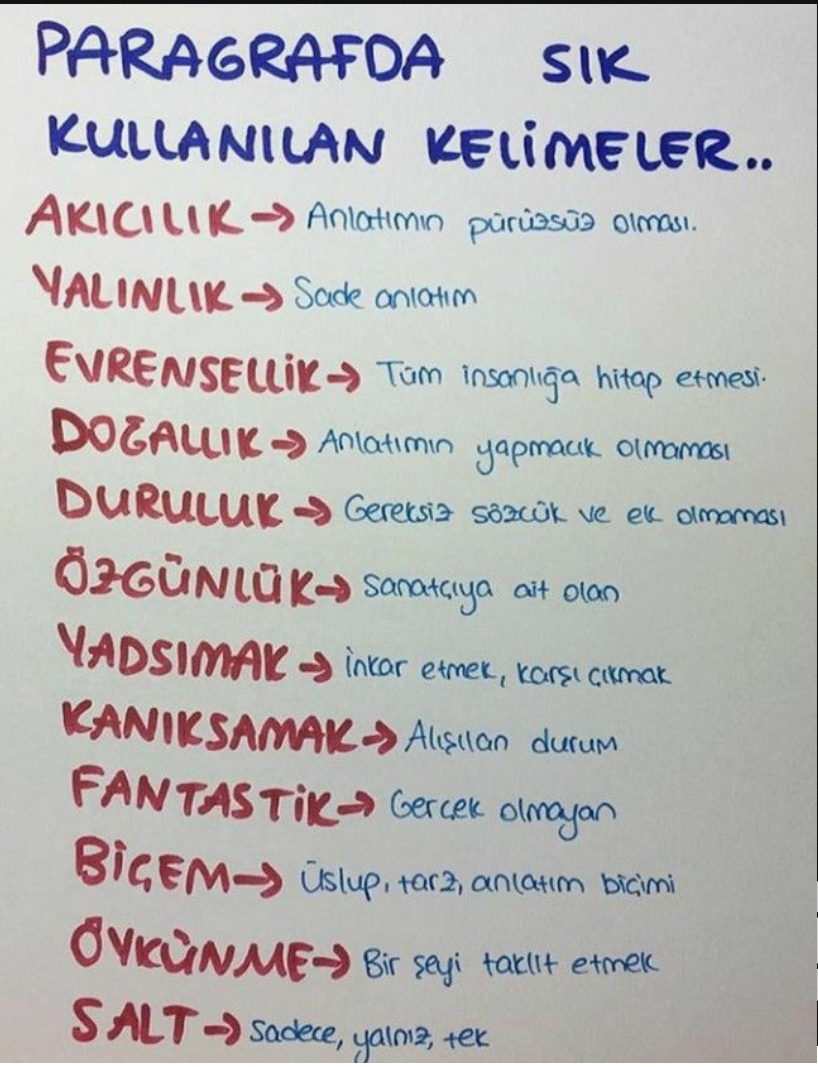 PARAGRAFDA SIK
KULLANILAN KELİMELER..
AKICILIK → Anlatımın pürüzsüz olması.
YALINLIK → Sade anlatım
EVRENSELLİK → Tüm insanlığa hitap etmesi.
DOĞALLIK → Anlatımın yapmacık olmaması
DURULUK → Gereksiz sözcük ve ek olmaması
ÖZGÜNLÜK → Sanatçıya ait olan
YADSIMAK → İnkar etmek, karşı çıkmak
KANIKSAMAK → Alışılan durum
FANTASTİK → Gerçek olmayan
BİÇEM → Üslup, tarz, anlatım biçimi
ÖYKÜNME → Bir şeyi taklit etmek
SALT → Sadece, yalnız, tek